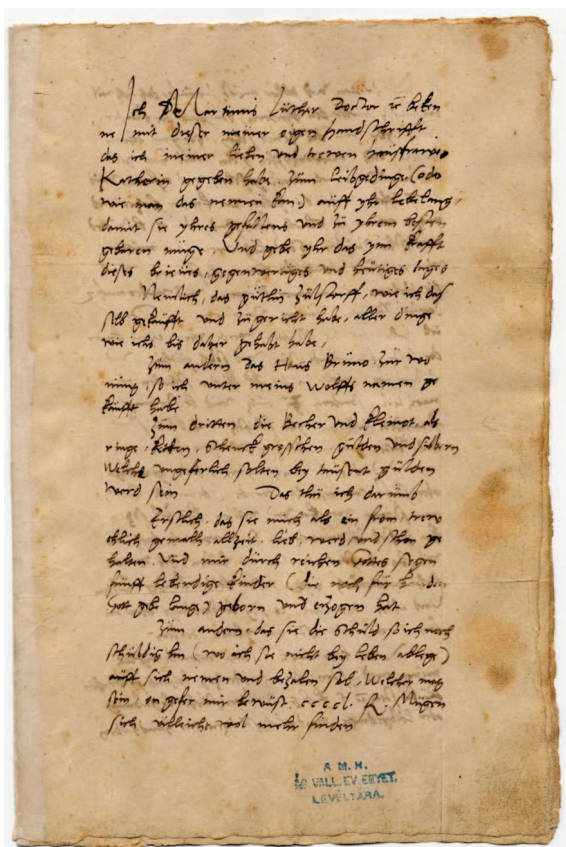 Ich Martinus Luther Doctor etc beken
ne mit dieser meiner eigen handschrifft
das ich meiner lieben und trewen hausfrawen
Katherin gegeben habe zum leibgedinge (oder
wie man das nennen kan) auff yhr lebelang,
damit sie yhres gefallens und zu yhrem besten
gebaren müge, Und gebe yhr das ynn krafft
dieses brieves, gegenwertiges und heutiges tages
Nemlich, das gütlin Zülstorff, wie ich das
selb gekaufft und zugericht habe, aller dinge
wie ichs bis daher gehabt habe,
Zum andern das Haus Bruno zur wo
nung, so ich unter meins Wolffs namen ge
kaufft habe
Zum dritten die Becher und kleinot, als
ringe, keten, schenckgroschen gülden und silbern
Welche ungeferlich solten bey tausent gülden
werd sein Das thu ich darumb
Erstlich, das sie mich als ein from trew
ehlich gemalh allzeit lieb, werd und schon ge
halten, Und mir durch reichen Gottes segen
fünff lebendige kinder (die noch fur handen
Gott gebe lange) geborn und erzogen hat
Zum andern, das sie die schuld so ich noch
schüldig bin (wo ich sie nicht bey leben ablege)
auff sich nemen und bezalen sol, Welcher mag
sein, ongefer mir bewust, ccccl. fl. Mügen
sich villeicht wol mehr finden
A M. H.
VALL. EV. EGYET.
LEVÉLTÁRA.